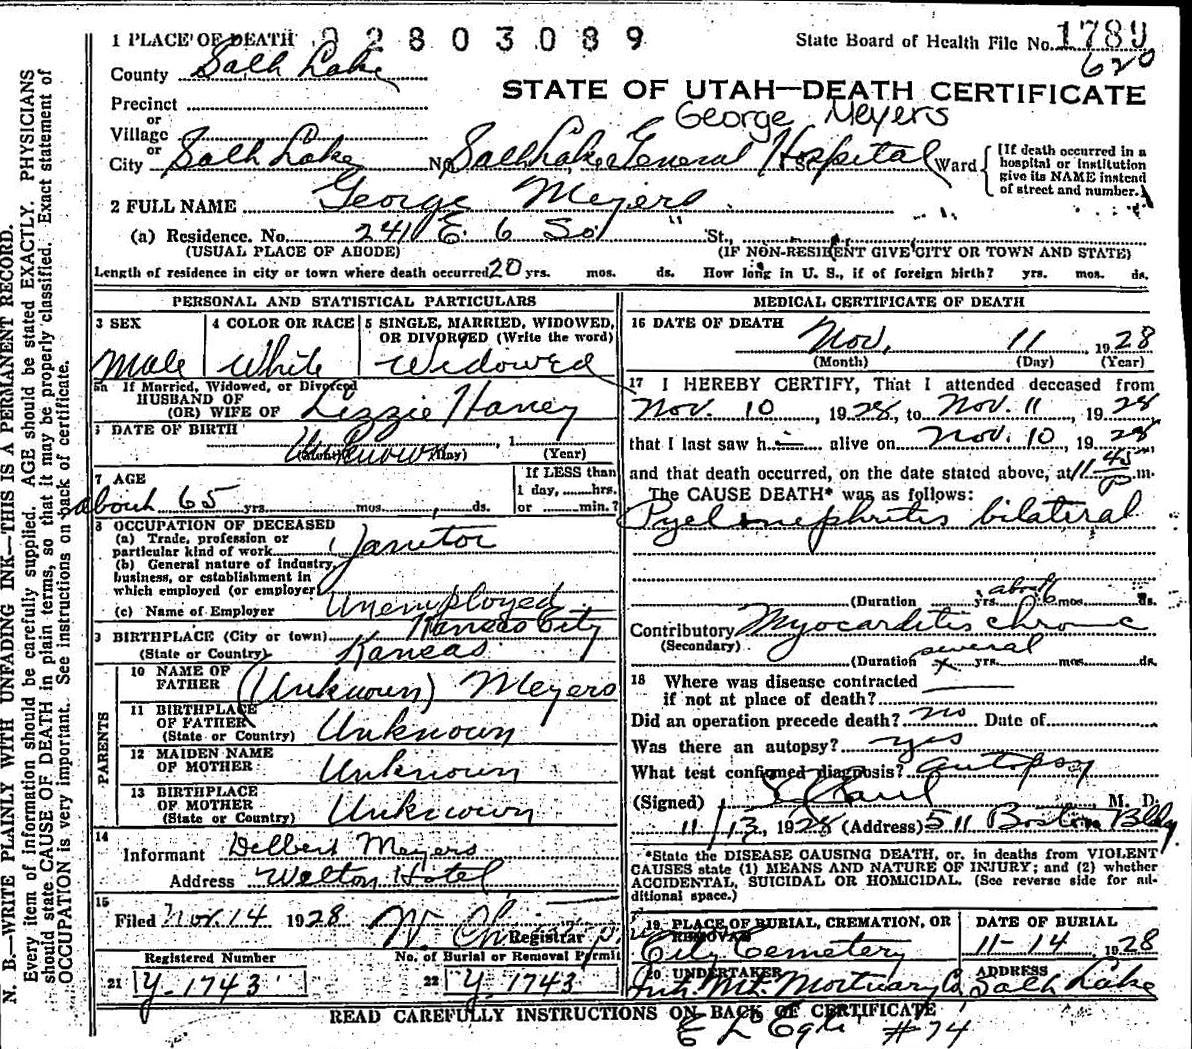 1 PLACE OF DEATH 92803089 State Board of Health File No. 1789
620
County Salt Lake
STATE OF UTAH—DEATH CERTIFICATE
Precinct
or
Village
George Meyers
or
City Salt Lake No. Salt Lake General Hospital St. Ward
[If death occurred in a hospital or institution give its NAME instead of street and number.]
2 FULL NAME George Meyers
(a) Residence. No. 241 E. 6 So St.,
(USUAL PLACE OF ABODE) (IF NON-RESIDENT GIVE CITY OR TOWN AND STATE)
Length of residence in city or town where death occurred 20 yrs. mos. ds. How long in U. S., if of foreign birth? yrs. mos. ds.
PERSONAL AND STATISTICAL PARTICULARS
3 SEX
Male
4 COLOR OR RACE
White
5 SINGLE, MARRIED, WIDOWED, OR DIVORCED (Write the word)
Widowed
5a If Married, Widowed, or Divorced
HUSBAND OF
(OR) WIFE OF Lizzie Haney
DATE OF BIRTH
Unknown
(Month) (Day) , 1 (Year)
7 AGE
about 65 yrs. mos. ds.
If LESS than
1 day, hrs.
or min.?
8 OCCUPATION OF DECEASED
(a) Trade, profession or
particular kind of work Janitor
(b) General nature of industry,
business, or establishment in
which employed (or employer)
(c) Name of Employer Unemployed
9 BIRTHPLACE (City or town) Kansas City
(State or Country) Kansas
PARENTS
10 NAME OF
FATHER (Unknown) Meyers
11 BIRTHPLACE
OF FATHER
(State or Country) Unknown
12 MAIDEN NAME
OF MOTHER Unknown
13 BIRTHPLACE
OF MOTHER
(State or Country) Unknown
14
Informant Delbert Meyers
Address Welton Hotel
15
Filed Nov. 14 1928
Registrar
Registered Number No. of Burial or Removal Permit
21 Y-1743 22 Y-1743
MEDICAL CERTIFICATE OF DEATH
16 DATE OF DEATH
Nov. 11 1928
(Month) (Day) (Year)
17 I HEREBY CERTIFY, That I attended deceased from
Nov. 10, 1928, to Nov. 11, 1928
that I last saw h alive on Nov. 10, 1928
and that death occurred, on the date stated above, at 11 45 P m.
The CAUSE DEATH* was as follows:
Pyelonephritis bilateral
(Duration about yrs. 6 mos. ds.
Contributory Myocarditis chronic
(Secondary)
(Duration several yrs. mos. ds.
18 Where was disease contracted
if not at place of death?
Did an operation precede death? no Date of
Was there an autopsy? yes
What test confirmed diagnosis? autopsy
(Signed) M. D.
11/13, 1928 (Address) 511 Boston Bldg.
*State the DISEASE CAUSING DEATH, or, in deaths from VIOLENT
CAUSES state (1) MEANS AND NATURE OF INJURY; and (2) whether
ACCIDENTAL, SUICIDAL OR HOMICIDAL. (See reverse side for additional space.)
19 PLACE OF BURIAL, CREMATION, OR REMOVAL
City Cemetery
DATE OF BURIAL
11-14 1928
20 UNDERTAKER
Int. Mt. Mortuary Co.
ADDRESS
Salt Lake
READ CAREFULLY INSTRUCTIONS ON BACK OF CERTIFICATE
#74
N. B.—WRITE PLAINLY WITH UNFADING INK—THIS IS A PERMANENT RECORD.
Every item of information should be carefully supplied. AGE should be stated EXACTLY. PHYSICIANS
should state CAUSE OF DEATH in plain terms, so that it may be properly classified. Exact statement of
OCCUPATION is very important. See instructions on back of certificate.